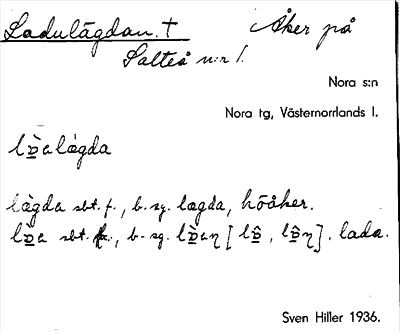 Ladulägdan. † Åker på
Salteå n:r 1.
Nora s:n
Nora tg, Västernorrlands l.
lὼalägda
lägda sbt. f., b. sg. lægda, höåker.
sbt. f., b. sg. lada.
Sven Hiller 1936.